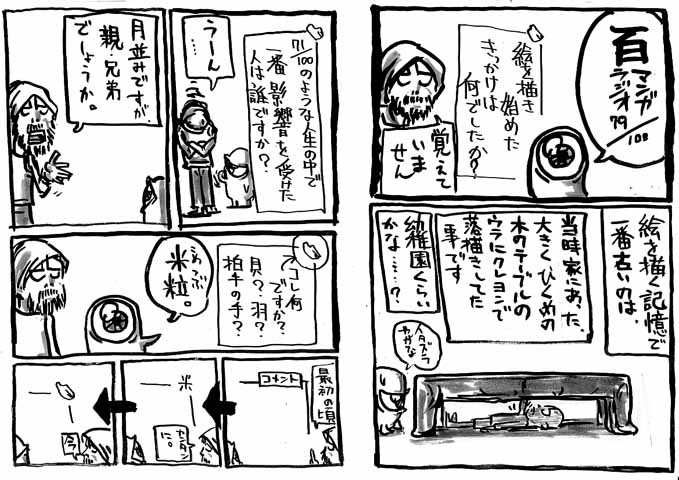 百マンガ
ラジオ79/100
絵を描き
始めた
きっかけは
何でしたか?
覚えて
いま
せん
絵を描く記憶で
一番古いのは、
当時家にあった、
大きくひくめの
木のテーブルの
ウラにクレヨンで
落描きしてた
事です
幼稚園くらい
かな……?
イタズラ
やがな
71/100のような人生の中で
一番影響を受けた
人は誰ですか?
うーん
…
月並みですが
親・兄弟
でしょうか。
コレ何
ですか?
貝?羽?
拍手の手?
米粒。
こめつぶ
最初の頃
コメント
米
カンタン
に。
今